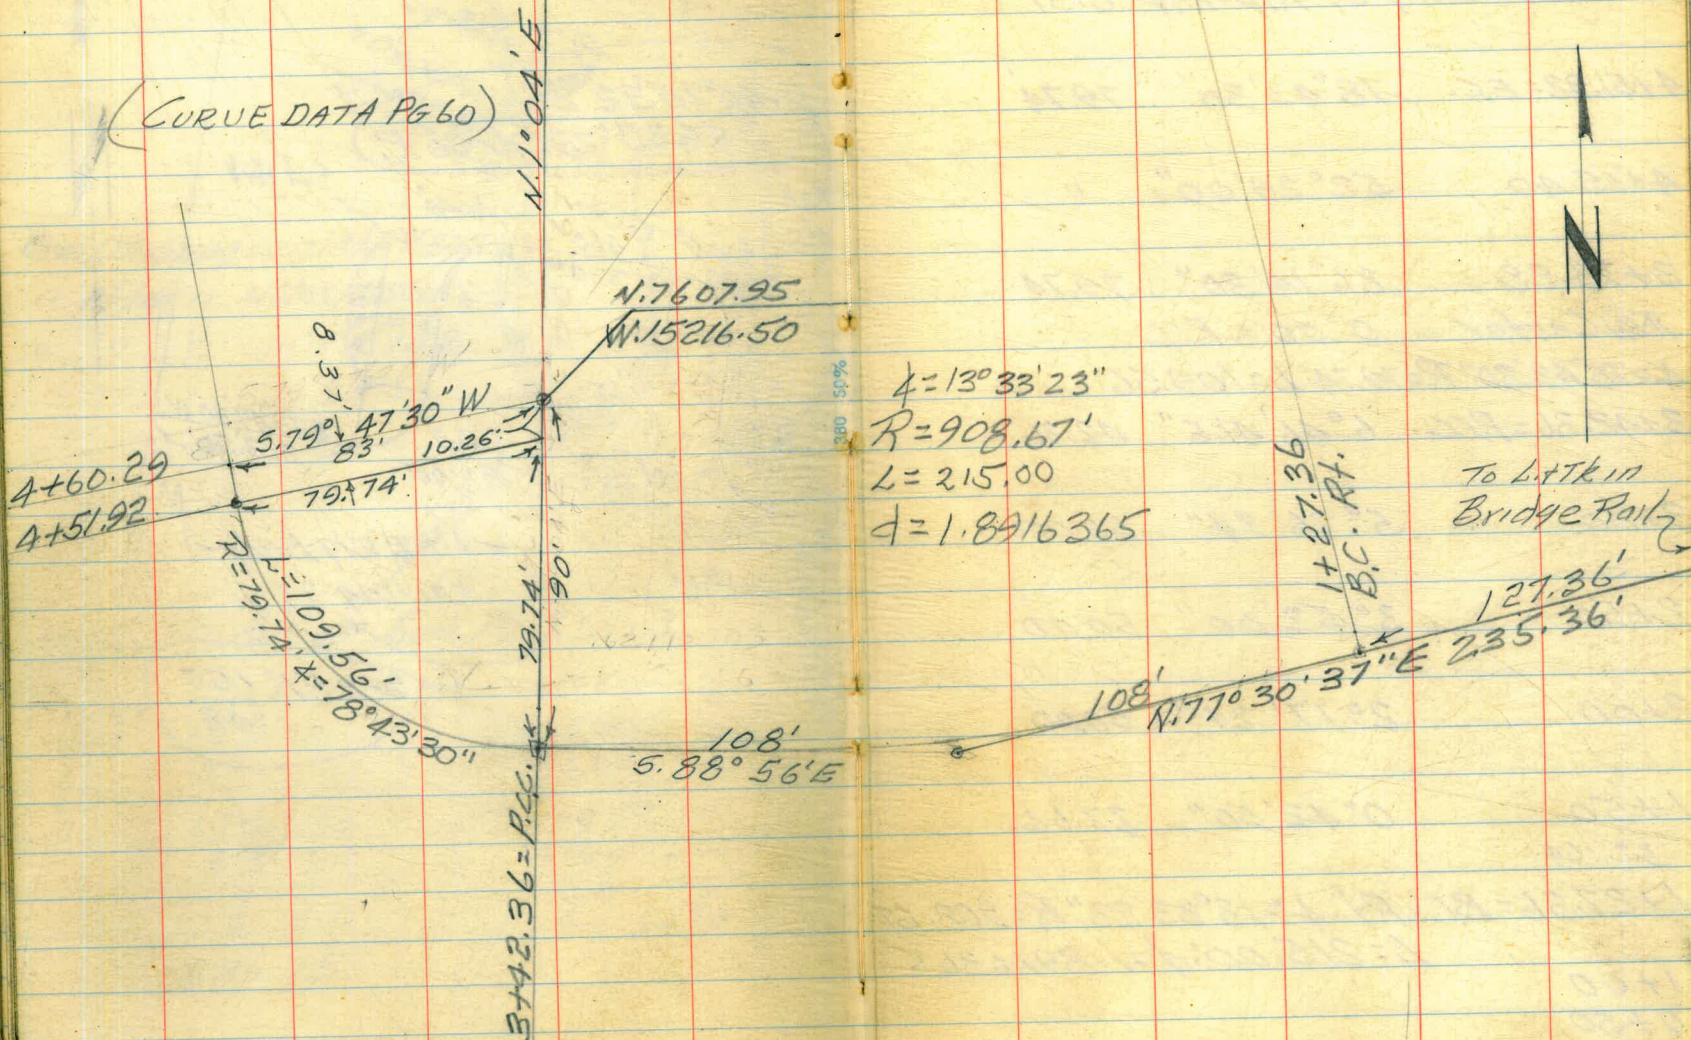 (CURVE DATA PG 60)
N.1°04'E
N.7607.95
W.15216.50
8.37'
S.79° 47'30" W
83'
10.26'
79.74'
4+60.29
4+51.92
R=79.74' ∡=78°43'30"
L=109.56'
79.74'
90'
3+42.36=P.C.C.
108'
S.88° 56'E
380 50%
∡=13°33'23"
R=908.67'
L=215.00
d=1.8916365
N
1+27.36
B.C. Rt.
To L.+Tk in
Bridge Rail
127.36'
108'
N.77°30'37"E 235.36'